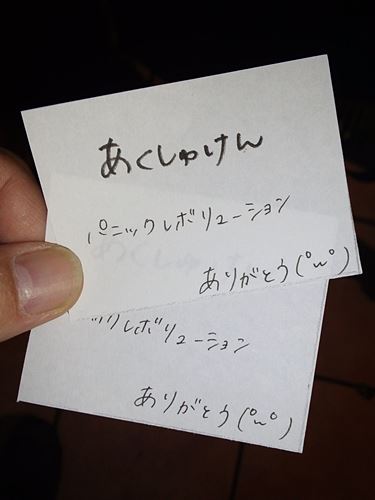 あくしゅけん
パニックレボリューション
ありがとう(°ω°)
ックレボリューション
ありがとう(°ω°)